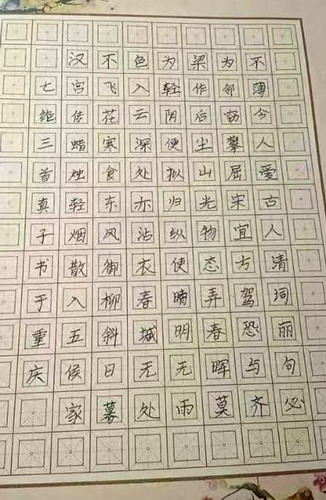 不薄今人爱古人清词丽句必
为邻窃攀屈宋宜方驾恐与齐
梁作后尘山光物态弄春晖莫
为轻阴便拟归纵使晴明无雨
色入云深处亦沾衣春城无处
不飞花寒食东风御柳斜日暮
汉宫传蜡烛轻烟散入五侯家
七绝三首真子书于重庆